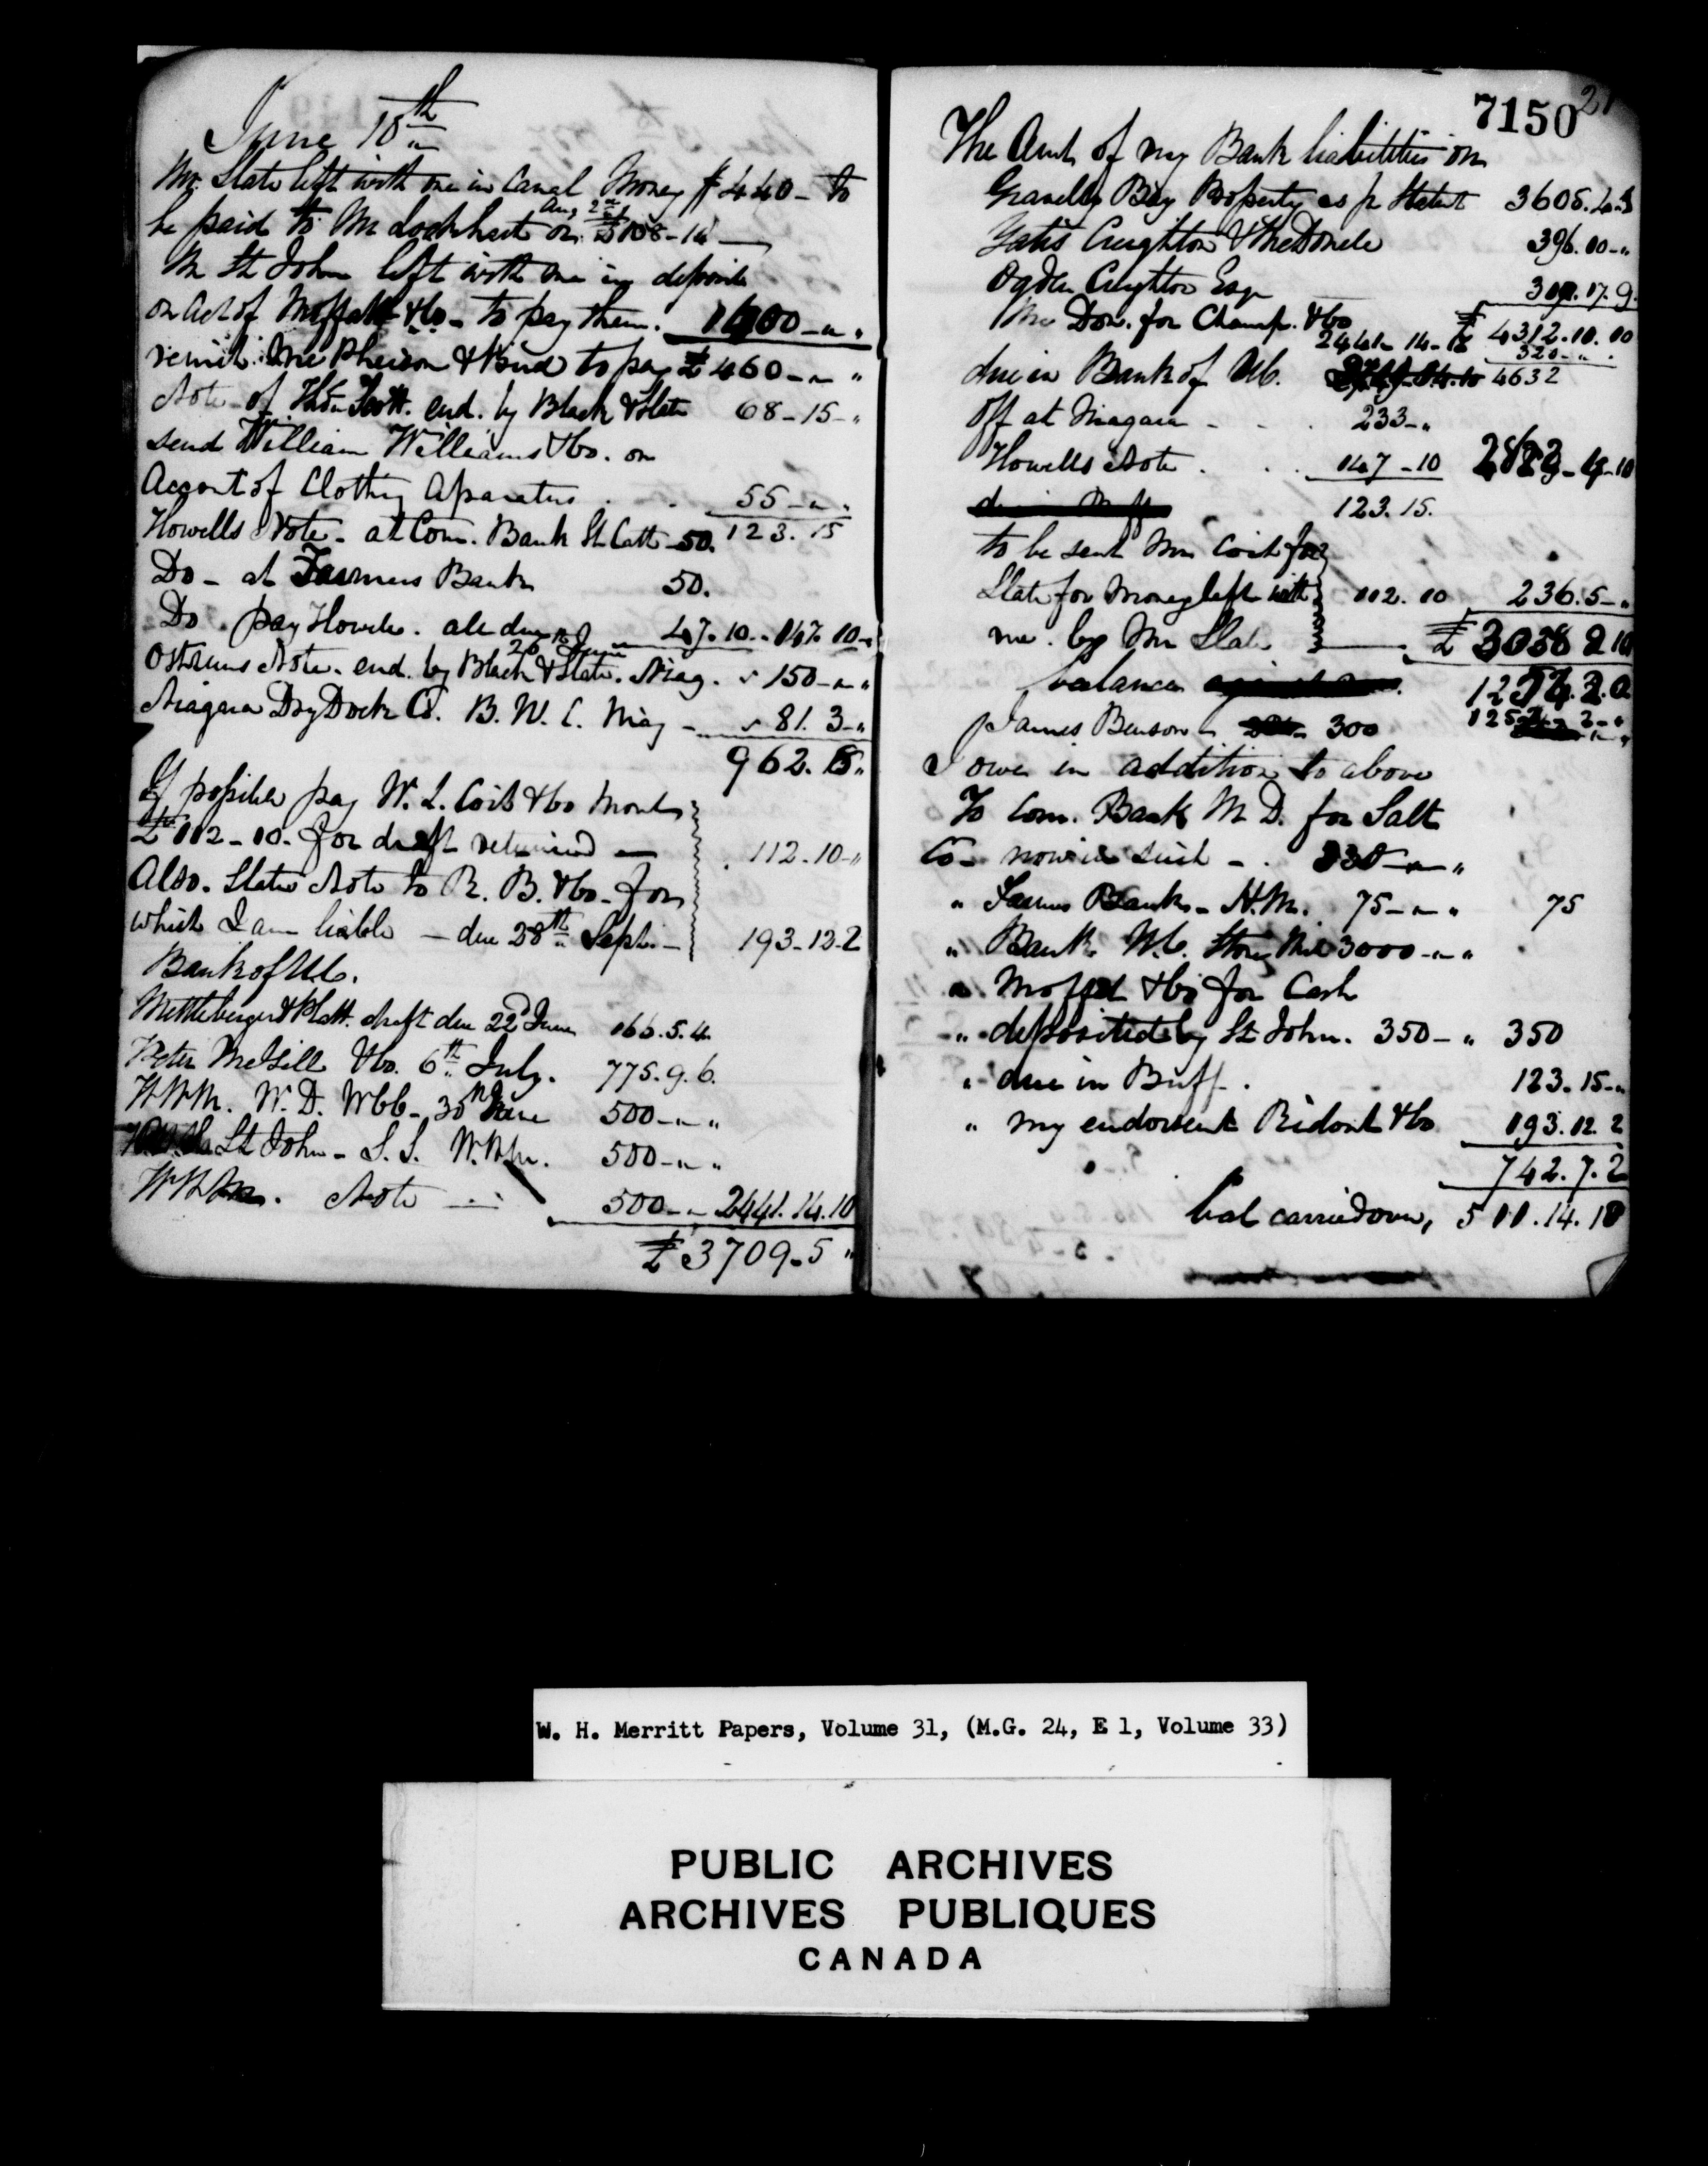 June 10th
Mr. Slate left with me in Canal Money $440 - to
be paid to Mr Lockhart on Aug 2nd £108-10
Mr St John left with me in deposite
on Act of Moffatt & Co - to pay them. 1400 - " "
remit. McPherson & to pay £ 460 - " "
Note of Thos Scott. end. by Black & Slate 68-15-"
send William Williams & Co. on
Account of Clothing Aparatus . 55 - " "
Howells Note - at Com. Bank St Cath - 50. 123.15
Do - at Farmers Bank 50.
Do . pay Howell . all due 47.10 - 147.10-"
Ostrums Note. end. by Black & Slate. Niag. 26 June 150 - " "
Niagara Dry Dock Co. B. U. C. Niag - 81. 3-"
962. 8"
If possible pay W. L. Coit & Co Mont
£112-10. for draft returned 112.10-"
Also. Slates Note to R. B. & Co - for
which I am liable - due 28th Sept. - 193-12-2
Bank of U C.
Mittleberger & Platt. draft due 22d June 166.5.4.
Peter McGill & Co. 6th July. 775.9.6.
W H M. W. D. 30 June 500 - " "
St John - S. S. W.H.M. 500 - " "
W H M. Note 500 - " 2441.14.10
£ 3709-5 "
7150
21
The Amt of my Bank liabilities on
Gravelly Bay Property as pr Statmt 3605.4.3
Yates Creighton & McDonell 396.00-"
Ogden Creyhton Esq 17.9
Mc Don. for Champ. & Co £ 4312.10.00
2441-14-10 320 - " .
due in Bank of U C. 4632
Off at Niagara - - . 233-"
Howells Note . . . 147-10
123.15.
to be sent Mr Coit for
Slate for money left with 112.10 236.5-"
me. by Mr Slate £ 3058 2 10
balance
James Benson 300
I owe in addition to above
To Com. Bank M D. for Salt
Co- now in suit - .
" Farmers Bank - H.M. 75 - " " 75
" Bank U.C. 3000 - " "
" Moffat & Co for Cash
" deposited by St John. 350 - " 350
" due in Buff . 123.15-"
" my endorsent Ridout & Co 193.12.2
742.7.2
bal carried over, 511.14.10
W. H. Merritt Papers, Volume 31, (M.G. 24, E 1, Volume 33)
PUBLIC ARCHIVES
ARCHIVES PUBLIQUES
CANADA